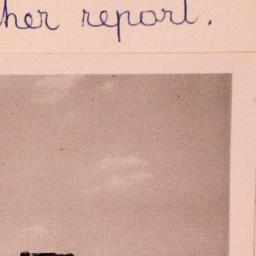 her report.